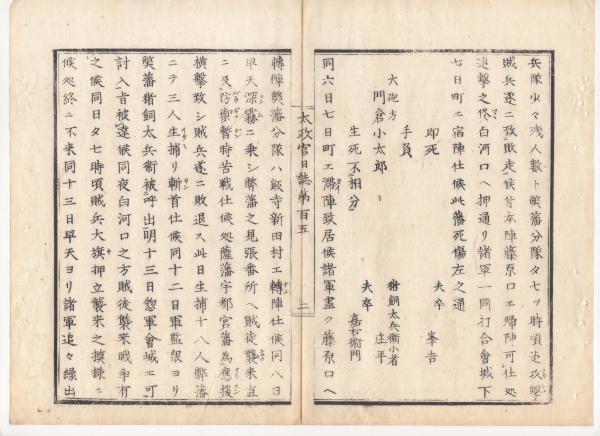 兵隊少々残人数ト弊藩分隊夕七ツ時頃迄攻撃
賊兵遂ニ致敗走候ニ付本陣藤原口エ帰陣可仕処
追撃之侭白河口ヘ押通リ諸軍一同打合會城下
七日町エ宿陣仕候此藩死傷左之通
即死
夫卒 峯吉
手負
猪飼太兵衛小者 庄平
大砲方 門倉小太郎
夫卒 嘉右衛門
生死不相分
同六日七日町エ滞陣致居候諸軍盡ク藤原口ヘ
太政官日誌第百五
二
轉陣弊藩分隊ハ飯寺新田村エ轉陣仕候同八日
早天深霧ニ乗シ弊藩之見張番所ヘ賊徒襲来直
ニ及防禦暫時苦戦仕候処薩藩宇都宮藩為應援
横撃致シ賊兵遂ニ敗退ス此日生捕十八人弊藩
ニテ三人生捕リ斬首仕候同十二日軍監製ヨリ
弊藩猪飼太兵衛被呼出明十三日惣軍會城エ可
討入旨被達候同夜白河口之方賊徒襲来戦争有
之候同日夕七時頃賊兵大旗押立襲来之模様ニ
候処終ニ不来同十三日早天ヨリ諸軍追々繰出